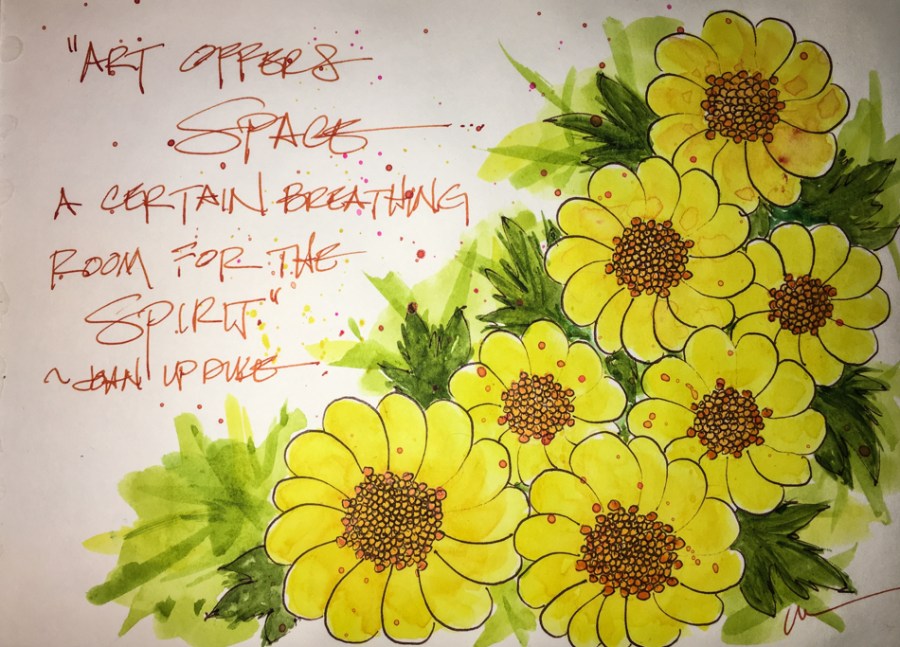 "ART OFFERS
SPACE
A CERTAIN BREATHING
ROOM FOR THE
SPIRIT"
~ JOAN UPDIKE